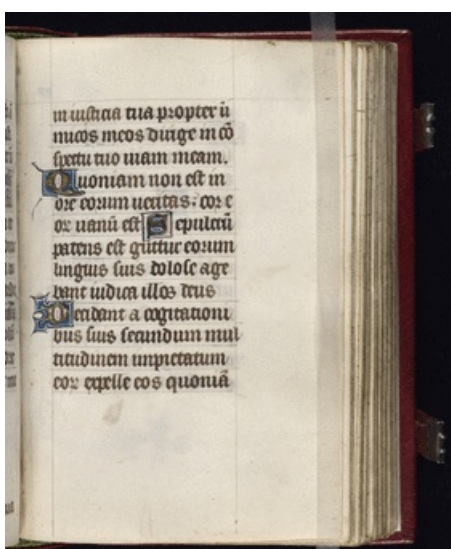 in iusticia tua propter ĩ
micos meos dirige in cõ
spectu tuo uiam meam.
Quoniam non est in
ore eorum ueritas: cor e
oꝛ uanũ est Sepulcrũ
patens est guttur eorum
linguis suis dolose age
bant iudica illos deus
Decidant a cogitationi
bus suis secundum mul
titudinem impietatum
eoꝛ expelle eos quoniã